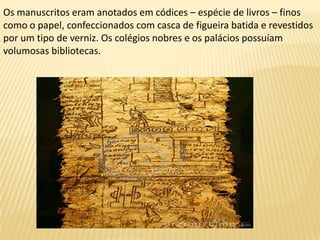 Os manuscritos eram anotados em códices – espécie de livros – finos
como o papel, confeccionados com casca de figueira batida e revestidos
por um tipo de verniz. Os colégios nobres e os palácios possuíam
volumosas bibliotecas.